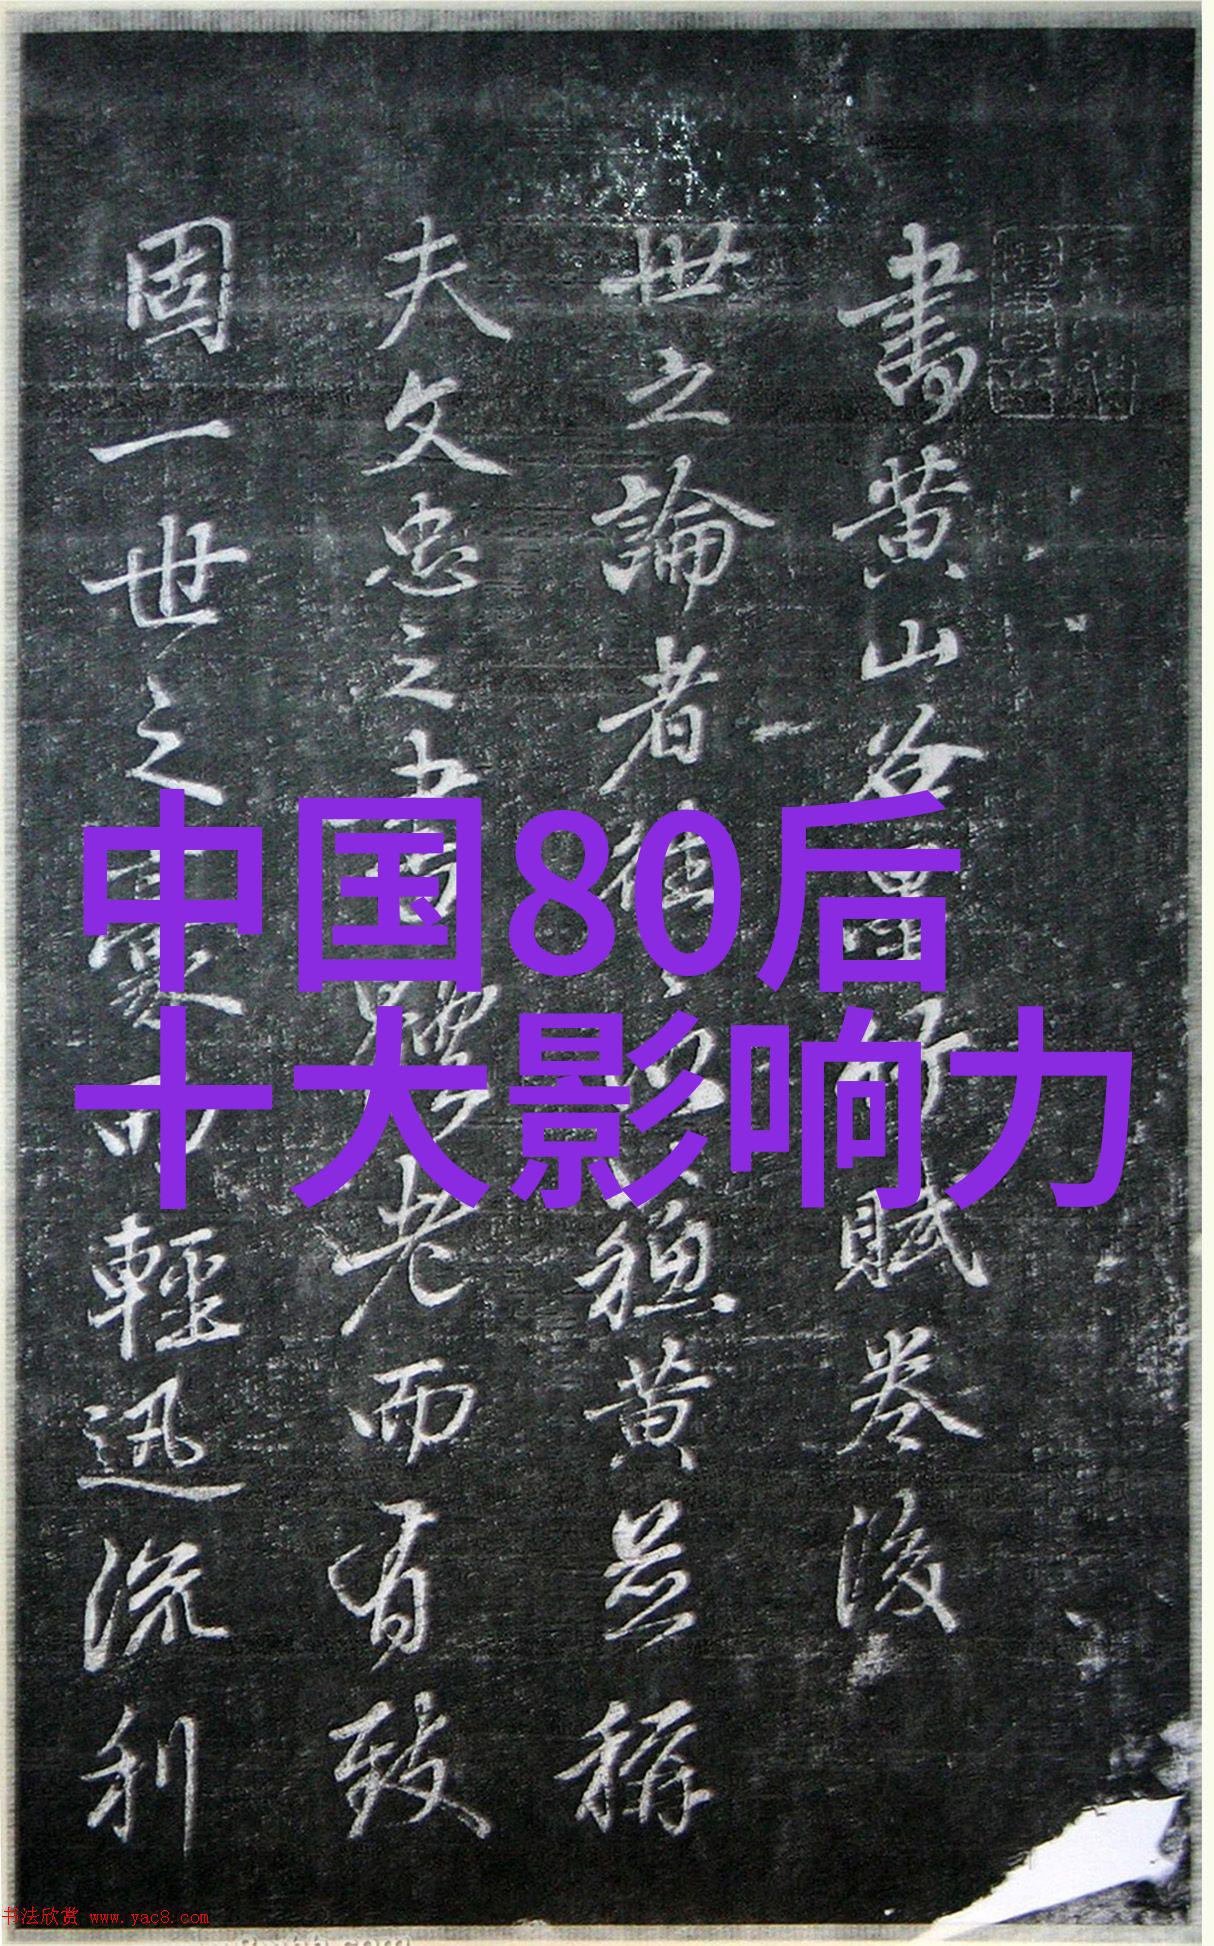 書黄山谷竹賦卷後
世之論者往以黄並稱
夫文忠之書體老而有致
固一世之而輕迅流利
中国80后
十大影响力
书法欣赏 www.yac8.com